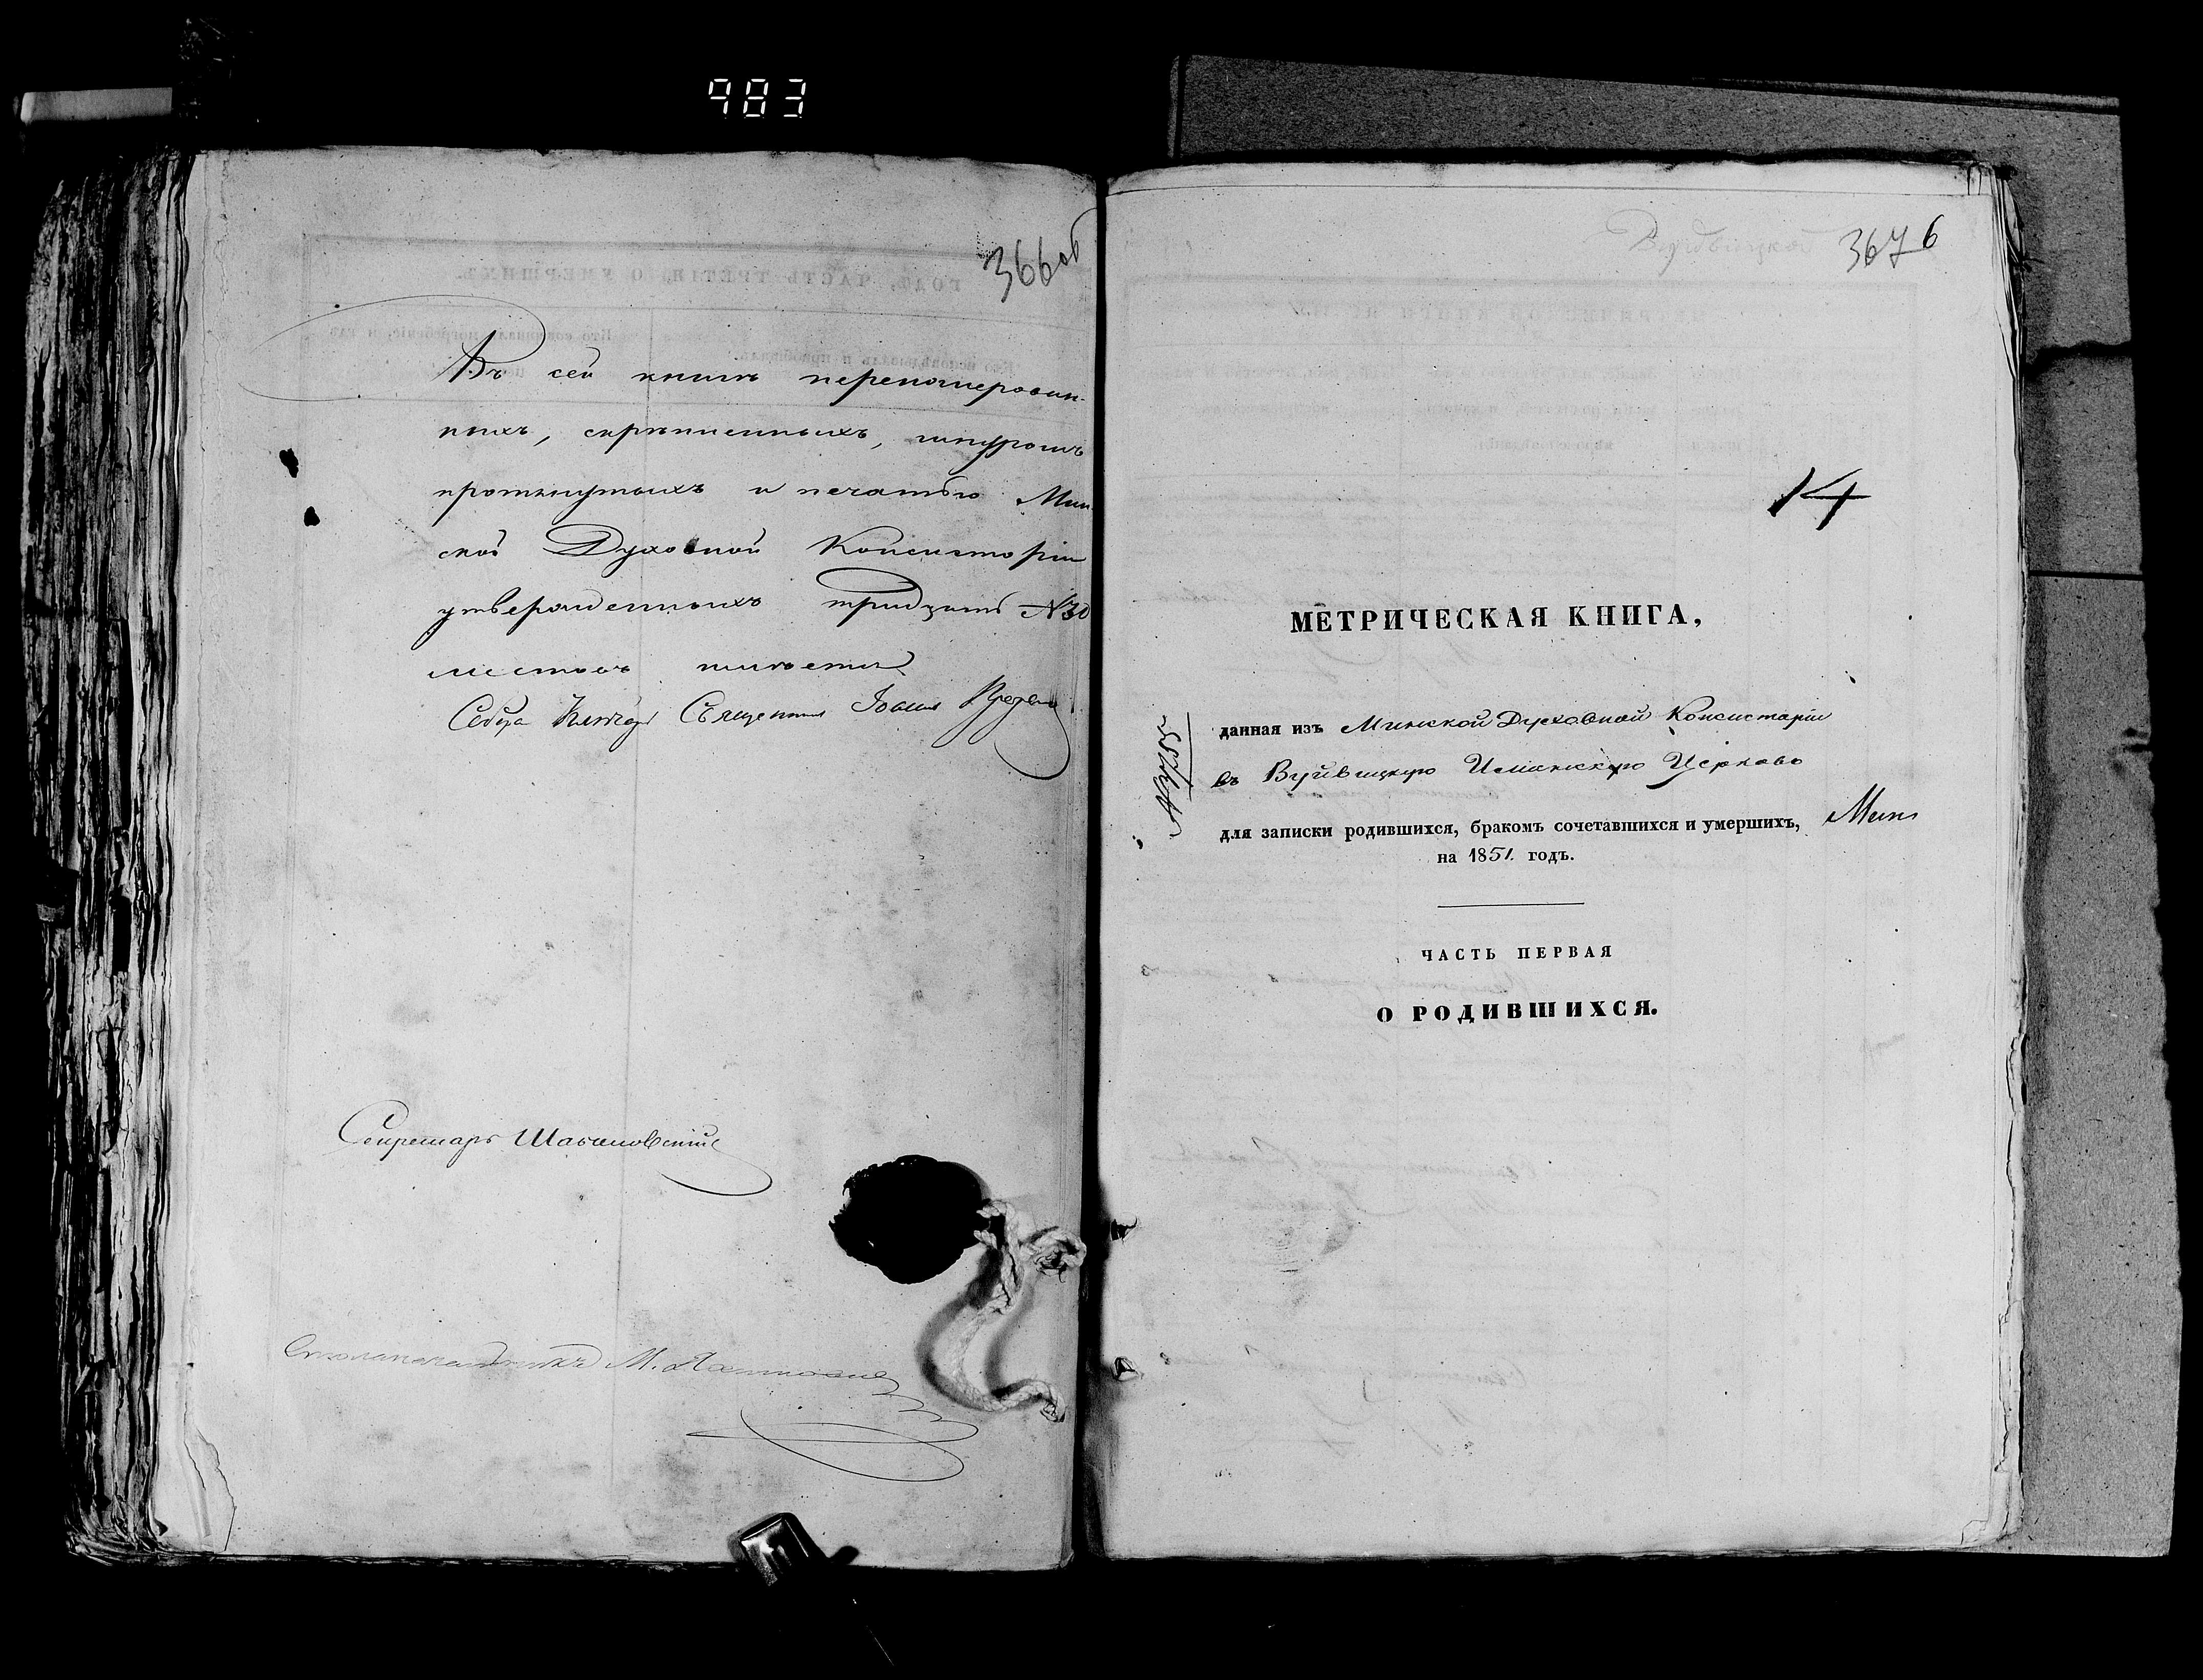 983
366об
Въ сей книгѣ перенумерован-
ныхъ, скрѣпленныхъ, шнуромъ
протянутыхъ и печатью Мин
ской Духовной Консисторіи
утвержденныхъ тридцать №30
листовъ имѣется
Священникъ Іоаннъ
Секретарь
Столоначальникъ М.
367 6
14
МЕТРИЧЕСКАЯ КНИГА,
данная изъ Минской Духовной Консисторіи
въ Церковь
для записки родившихся, бракомъ сочетавшихся и умершихъ,
на 1851. годъ.
ЧАСТЬ ПЕРВАЯ
О РОДИВШИХСЯ.